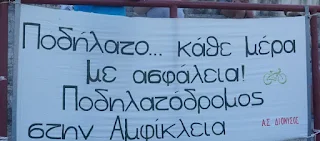 Ποδήλατο... κάθε μέρα
με ασφάλεια!
Ποδηλατόδρομος
στην Αμφίκλεια
Α.Σ ΔΙΟΝΥΣΟΣ